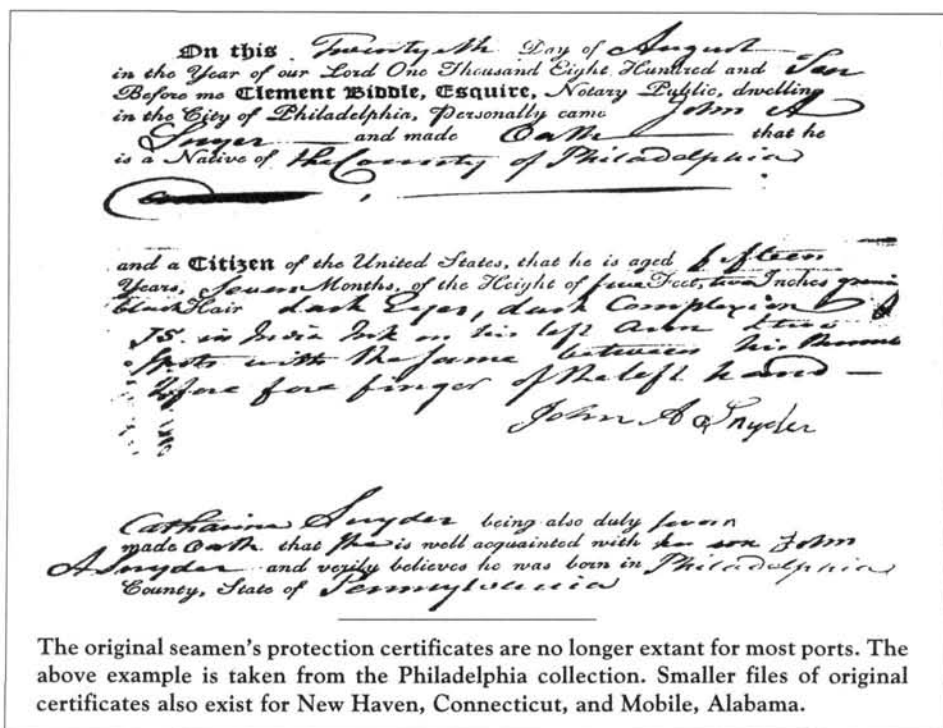 On this Twentyeth Day of August
in the Year of our Lord One Thousand Eight Hundred and Ten
Before me Clement Biddle, Esquire, Notary Public, dwelling
in the City of Philadelphia, Personally came John A
Snyer and made Oath that he
is a Native of the County of Philadelphia
and a Citizen of the United States, that he is aged fifteen
Years, Seven Months, of the Height of five Feet, two Inches
black Hair dark Eyes, dark Complexion
JS. in India Ink on his left Arm
Spots with the same between his
fore finger of the left hand —
John A Snyder
Catharine Snyder being also duly sworn
made Oath that she is well acquainted with her son John
A Snyder and verily believes he was born in Philadelphia
County, State of Pennsylvania
The original seamen's protection certificates are no longer extant for most ports. The
above example is taken from the Philadelphia collection. Smaller files of original
certificates also exist for New Haven, Connecticut, and Mobile, Alabama.